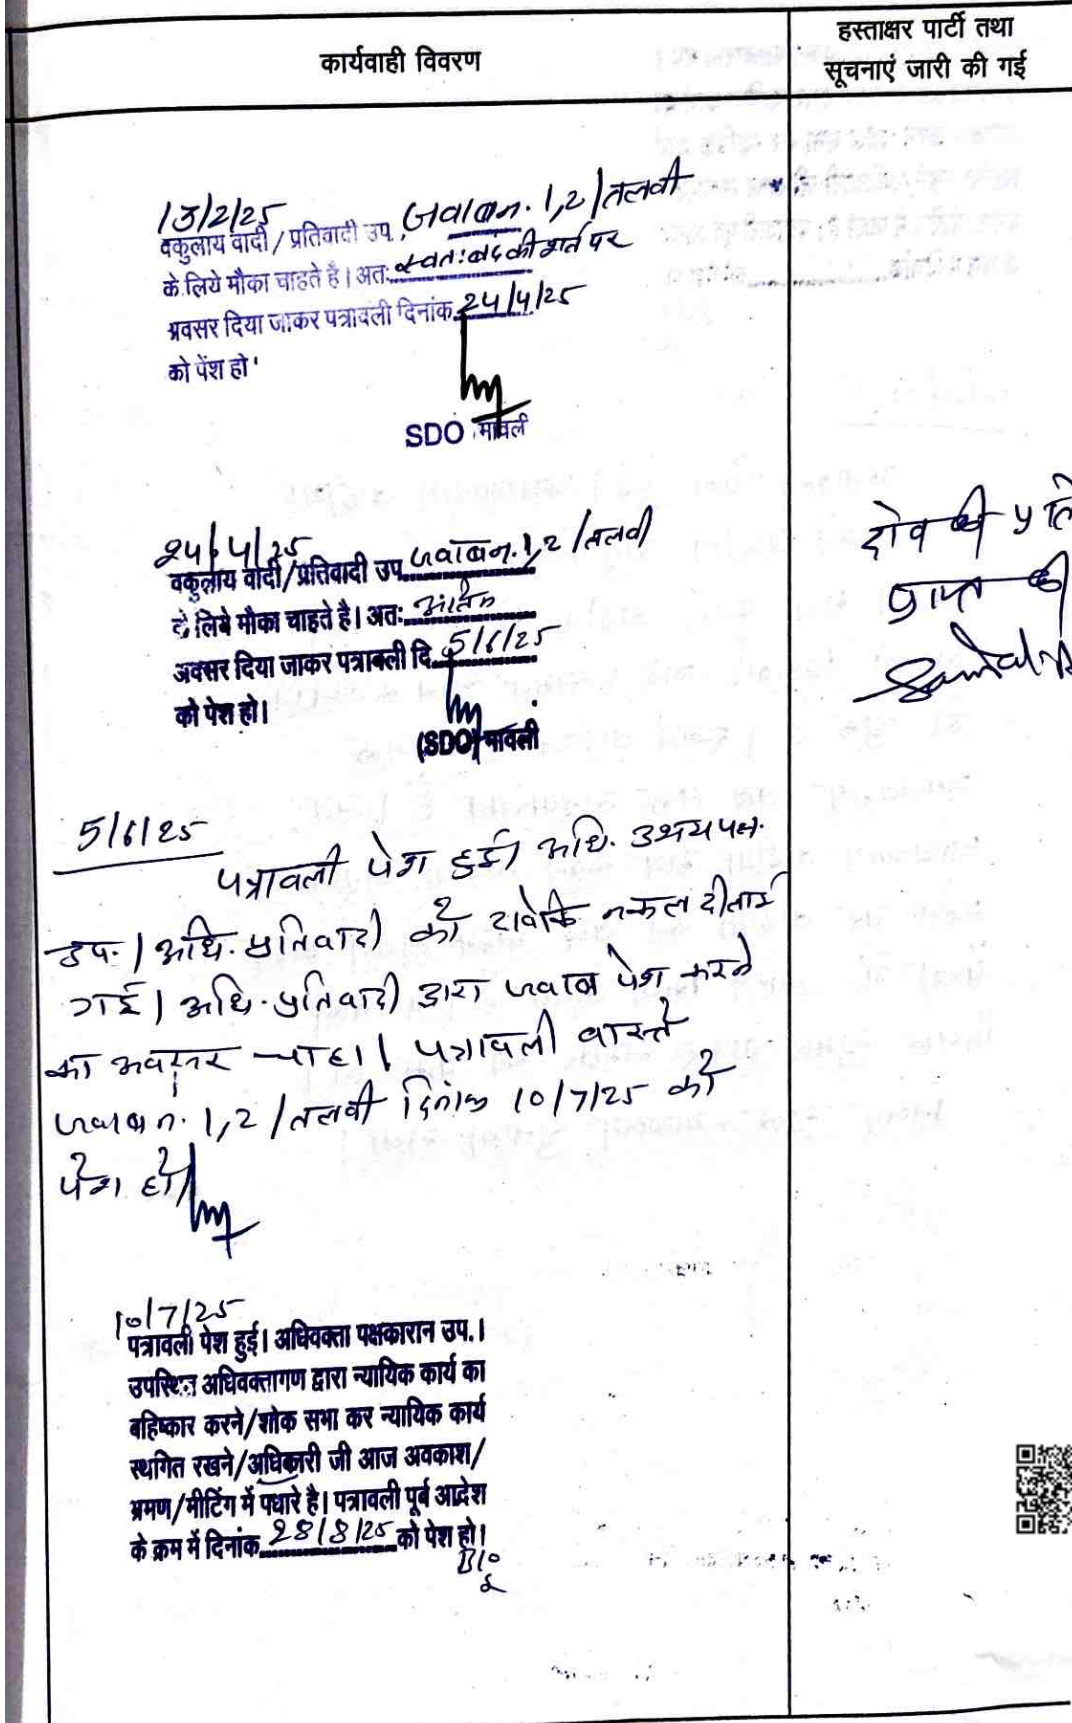 कार्यवाही विवरण
हस्ताक्षर पार्टी तथा
सूचनाएं जारी की गई
13/2/25
वकुलाय वादी / प्रतिवादी उप. जवाब न. 1,2 / तलवी
के लिये मौका चाहते है। अतः स्वतः बंद की शर्त पर
अवसर दिया जाकर पत्रावली दिनांक 24/4/25
को पेंश हो
SDO मावली
24/4/25
वकुलाय वादी/प्रतिवादी उप. जवाब न. 1,2 / तलवी
के लिये मौका चाहते है। अतः अंतिम
अवसर दिया जाकर पत्रावली दि. 5/6/25
को पेश हो।
(SDO) मावली
प्रति
प्राप्त की
5/6/25
पत्रावली पेश हुई। अधि. उभयपक्ष
उप.। अधि. प्रतिवादी को नकल
गई। अधि. प्रतिवादी द्वारा जवाब पेश करने
का अवसर चाहा। पत्रावली वास्ते
जवाब न. 1,2 / तलवी दिनांक 10/7/25 को
पेश हो।
10/7/25
पत्रावली पेश हुई। अधिवक्ता पक्षकारान उप.।
उपस्थित अधिवक्तागण द्वारा न्यायिक कार्य का
बहिष्कार करने/शोक सभा कर न्यायिक कार्य
स्थगित रखने/अधिकारी जी आज अवकाश/
भ्रमण/मीटिंग में पधारे है। पत्रावली पूर्व आदेश
के क्रम में दिनांक 28/8/25 को पेश हो।